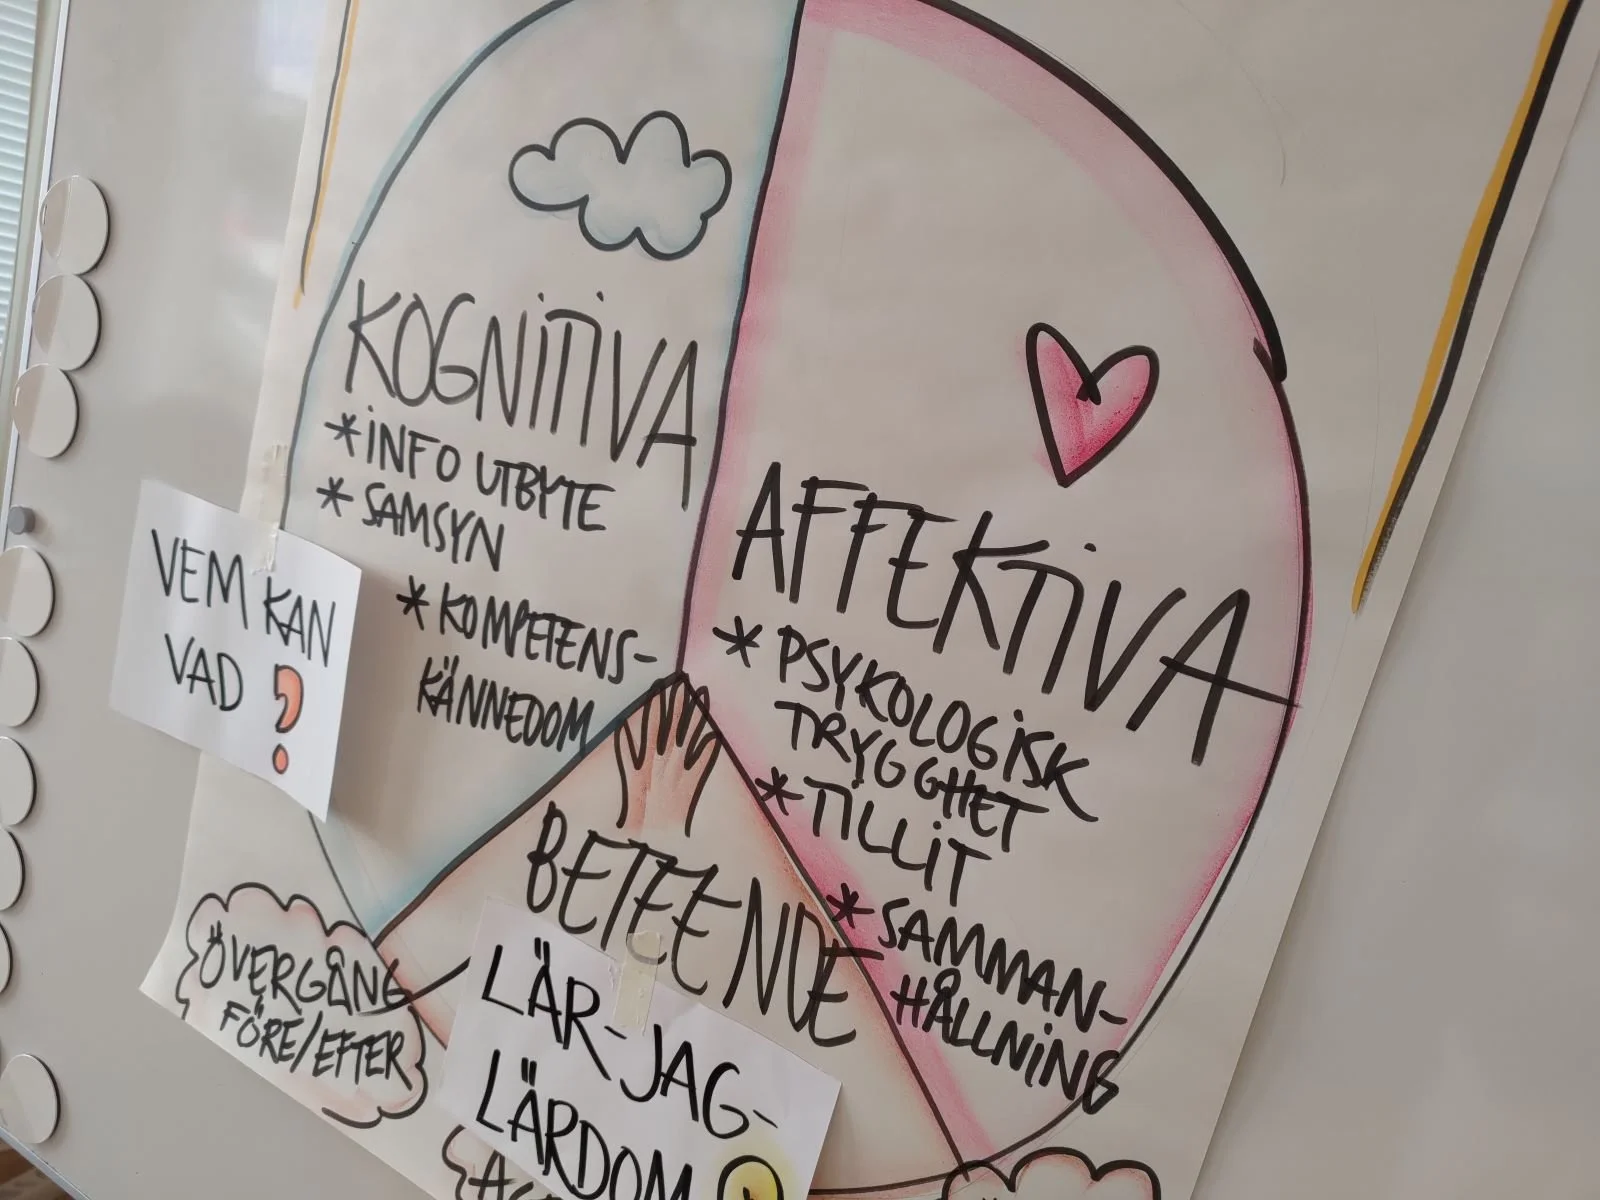 KOGNITIVA
* INFO UTBYTE
* SAMSYN
* KOMPETENS-
KÄNNEDOM
VEM KAN
VAD ?
AFFEKTIVA
* PSYKOLOGISK
TRYGGHET
* TILLIT
* SAMMAN-
HÅLLNING
BETEENDE
LÄR-JAG-
LÄRDOM
ÖVERGÅNG
FÖRE/EFTER